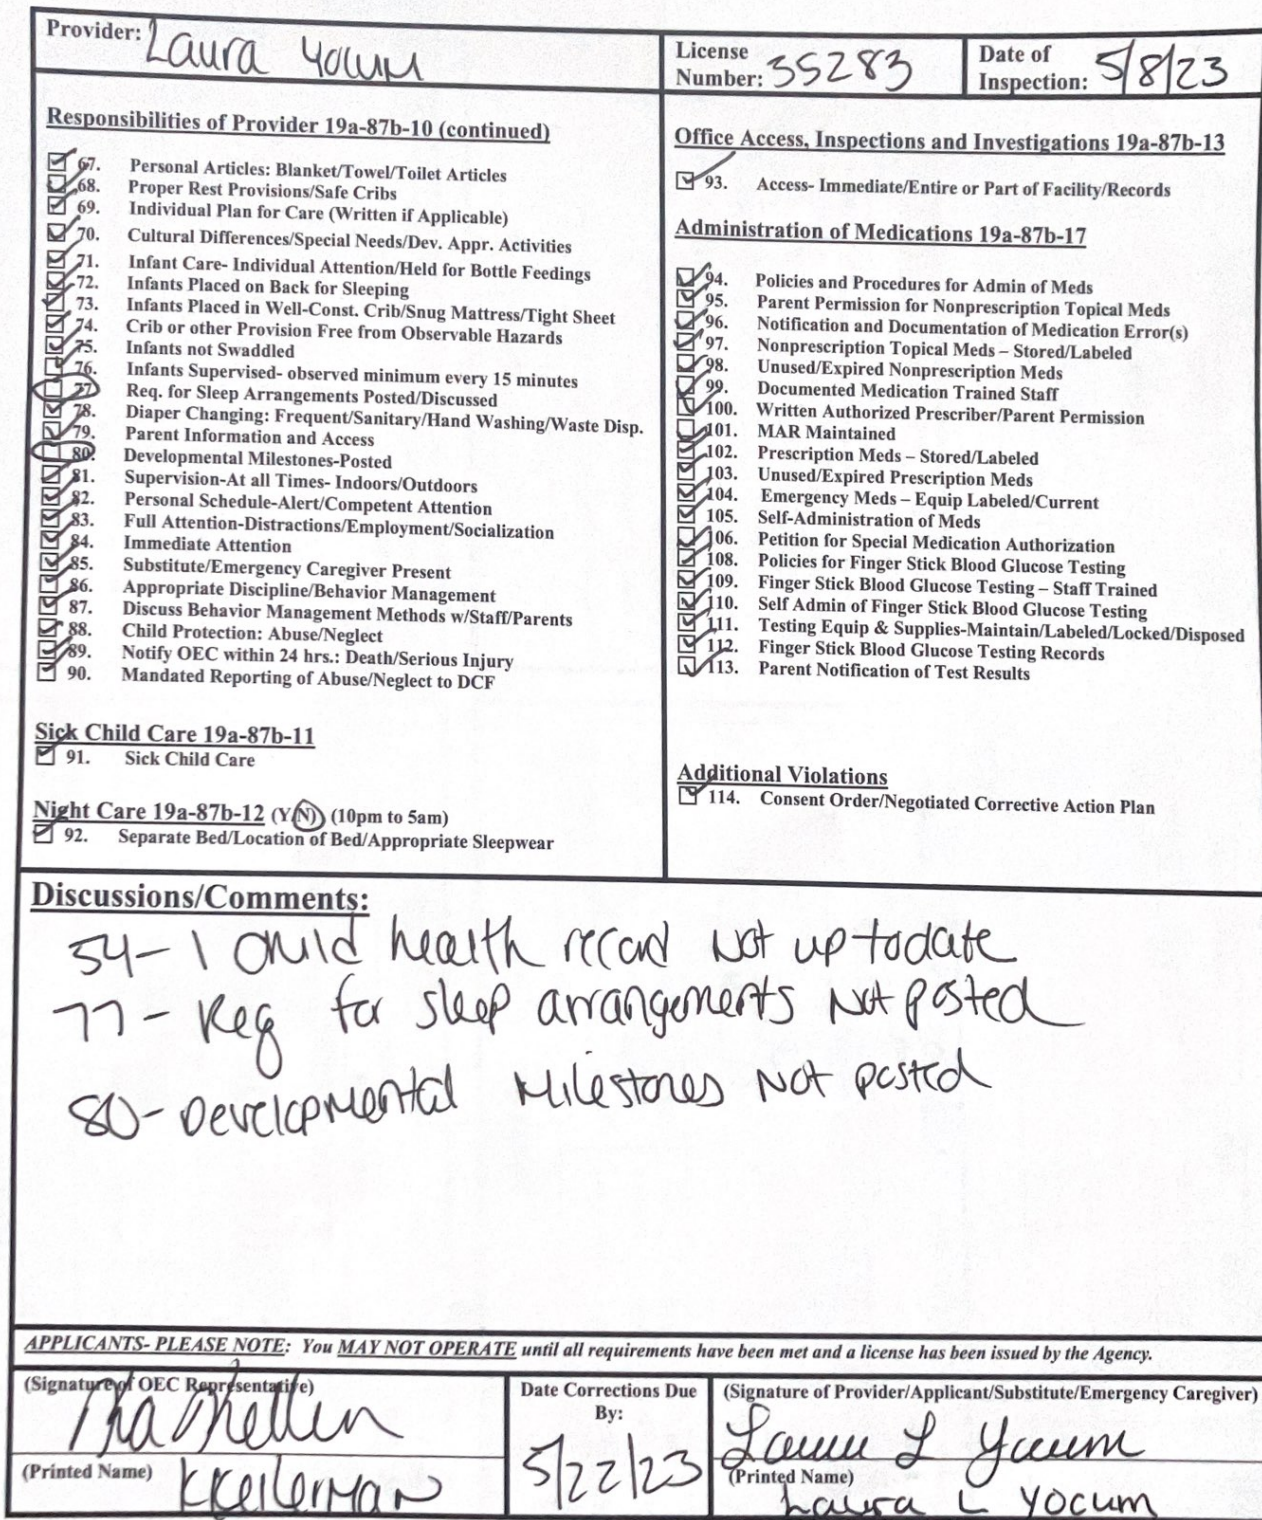 Provider: Laura Yocum
License Number: 35283
Date of Inspection: 5/8/23
Responsibilities of Provider 19a-87b-10 (continued)
67. Personal Articles: Blanket/Towel/Toilet Articles
68. Proper Rest Provisions/Safe Cribs
69. Individual Plan for Care (Written if Applicable)
70. Cultural Differences/Special Needs/Dev. Appr. Activities
71. Infant Care- Individual Attention/Held for Bottle Feedings
72. Infants Placed on Back for Sleeping
73. Infants Placed in Well-Const. Crib/Snug Mattress/Tight Sheet
74. Crib or other Provision Free from Observable Hazards
75. Infants not Swaddled
76. Infants Supervised- observed minimum every 15 minutes
77. Req. for Sleep Arrangements Posted/Discussed
78. Diaper Changing: Frequent/Sanitary/Hand Washing/Waste Disp.
79. Parent Information and Access
80. Developmental Milestones-Posted
81. Supervision-At all Times- Indoors/Outdoors
82. Personal Schedule-Alert/Competent Attention
83. Full Attention-Distractions/Employment/Socialization
84. Immediate Attention
85. Substitute/Emergency Caregiver Present
86. Appropriate Discipline/Behavior Management
87. Discuss Behavior Management Methods w/Staff/Parents
88. Child Protection: Abuse/Neglect
89. Notify OEC within 24 hrs.: Death/Serious Injury
90. Mandated Reporting of Abuse/Neglect to DCF
Sick Child Care 19a-87b-11
91. Sick Child Care
Night Care 19a-87b-12 (Y/N) (10pm to 5am)
92. Separate Bed/Location of Bed/Appropriate Sleepwear
Office Access, Inspections and Investigations 19a-87b-13
93. Access- Immediate/Entire or Part of Facility/Records
Administration of Medications 19a-87b-17
94. Policies and Procedures for Admin of Meds
95. Parent Permission for Nonprescription Topical Meds
96. Notification and Documentation of Medication Error(s)
97. Nonprescription Topical Meds – Stored/Labeled
98. Unused/Expired Nonprescription Meds
99. Documented Medication Trained Staff
100. Written Authorized Prescriber/Parent Permission
101. MAR Maintained
102. Prescription Meds – Stored/Labeled
103. Unused/Expired Prescription Meds
104. Emergency Meds – Equip Labeled/Current
105. Self-Administration of Meds
106. Petition for Special Medication Authorization
108. Policies for Finger Stick Blood Glucose Testing
109. Finger Stick Blood Glucose Testing – Staff Trained
110. Self Admin of Finger Stick Blood Glucose Testing
111. Testing Equip & Supplies-Maintain/Labeled/Locked/Disposed
112. Finger Stick Blood Glucose Testing Records
113. Parent Notification of Test Results
Additional Violations
114. Consent Order/Negotiated Corrective Action Plan
Discussions/Comments:
54- 1 child health record Not up to date
77- Req for sleep arrangements Not posted
80- Developmental Milestones Not posted
APPLICANTS- PLEASE NOTE: You MAY NOT OPERATE until all requirements have been met and a license has been issued by the Agency.
(Signature of OEC Representative)
(Printed Name) K Kellerman
Date Corrections Due By:
5/22/23
(Signature of Provider/Applicant/Substitute/Emergency Caregiver)
Laura L Yocum
(Printed Name)
Laura L Yocum